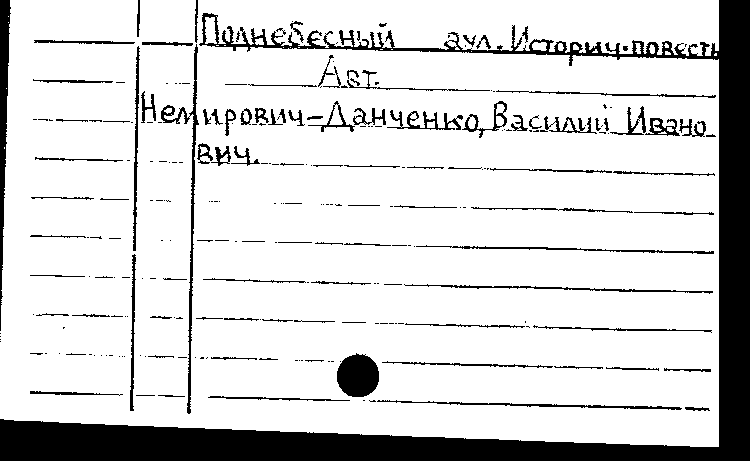 Поднебесный аул. Историч. повесть
Авт.
Немирович-Данченко, Василий Ивано
вич.